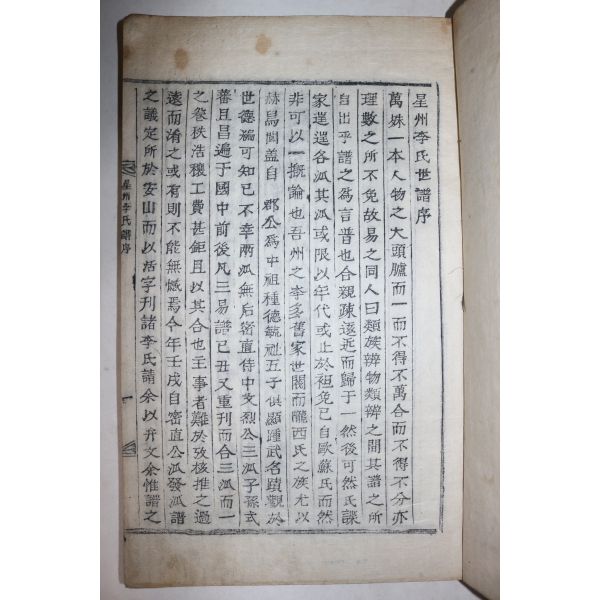 星州李氏世譜序
萬殊一本人物之大頭臚而一而不得不萬合而不得不分亦
理數之所不免故易之同人曰類族辨物類辨之間其譜之所
自出乎譜之為言普也合親疎遠近而歸于一然後可然氏譜
家遑遑各派其派或限以年代或止於袒免已自歐蘇氏而然
非可以一概論也吾州之李多舊家世閥而隴西氏之族尤以
赫舄聞盖自 郡公為中祖種德毓祉五子俱顯踵武名蹟觀於
世德編可知已不幸兩派無后密直侍中文烈公三派子孫式
蕃且昌遍于國中前後凡三易譜已丑又重刊而合三派而一
之卷秩浩穰工費甚鉅且以其合也主事者難於攷核推之過
遠而淆之或有則不能無憾焉今年壬戌自密直公派發派譜
之議定所於安山而以活字刊諸李氏請余以弁文余惟譜之
星州李氏譜序
一